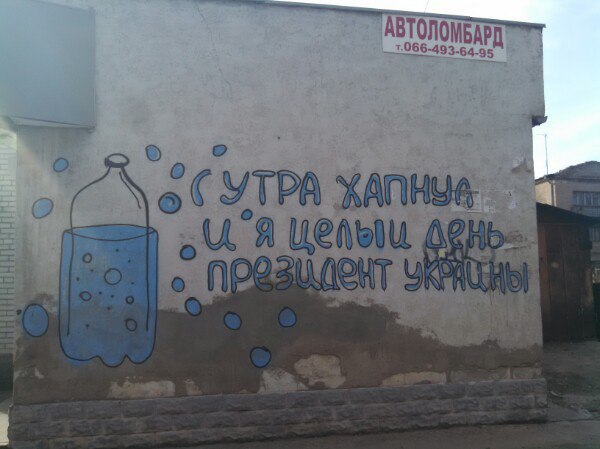 АВТОЛОМБАРД
т.066-493-64-95
С УТРА ХАПНУЛ
И Я ЦЕЛЫЙ ДЕНЬ
ПРЕЗИДЕНТ УКРАИНЫ